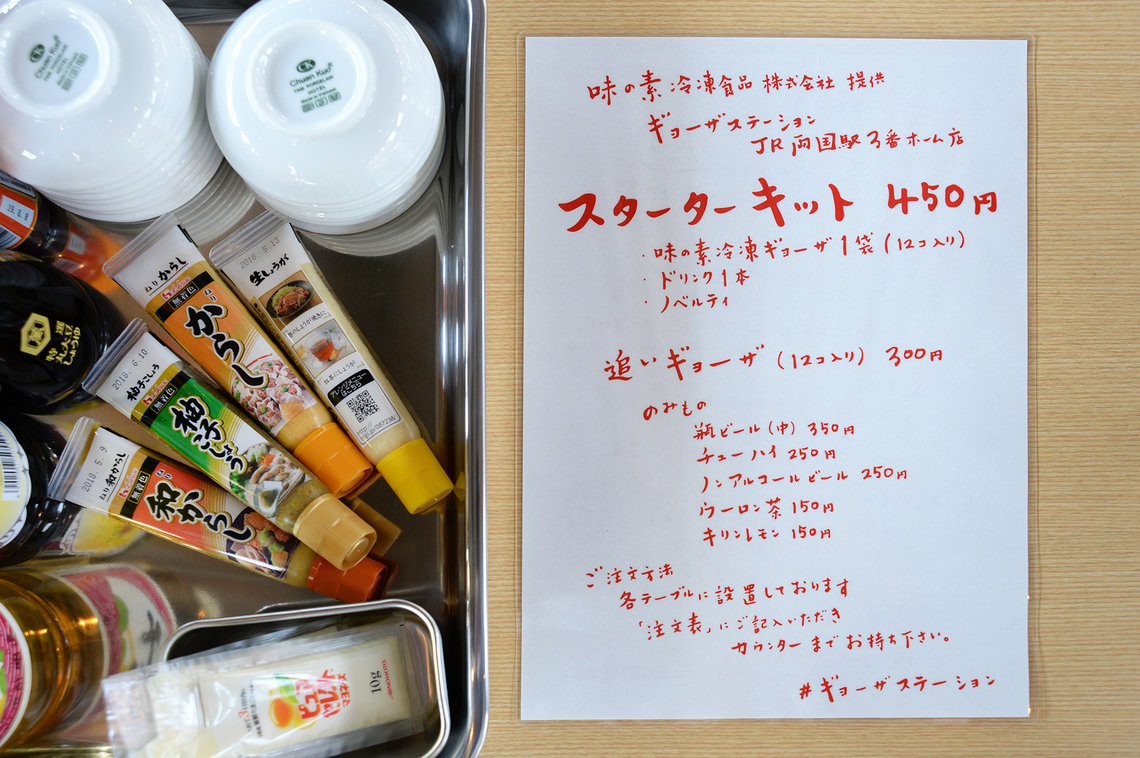 味の素冷凍食品 株式会社 提供
ギョーザステーション
JR両国駅3番ホーム店
スターターキット 450円
・味の素冷凍ギョーザ1袋(12コ入り)
・ドリンク1本
・ノベルティ
追いギョーザ(12コ入り) 300円
のみもの
瓶ビール(中) 350円
チューハイ 250円
ノンアルコールビール 250円
ウーロン茶 150円
キリンレモン 150円
ご注文方法
各テーブルに設置しております
「注文表」にご記入いただき
カウンターまでお持ち下さい。
#ギョーザステーション
CK
Chuan Kuo®
FINE PORCELAIN
HOTEL
CK
Chuan Kuo®
FINE PORCELAIN
HOTEL
ねりからし
無着色
ねり
からし
2018.5.13
生しょうが
アレンジメニュー
はこちら
2018.6.10
柚子こしょう
無着色
柚子こしょう
2018.5.9
ねり和からし
無着色
ねり
和からし
選
特
丸大豆
しょうゆ
ピュアセレクト
マヨネーズ
10g
AJINOMOTO